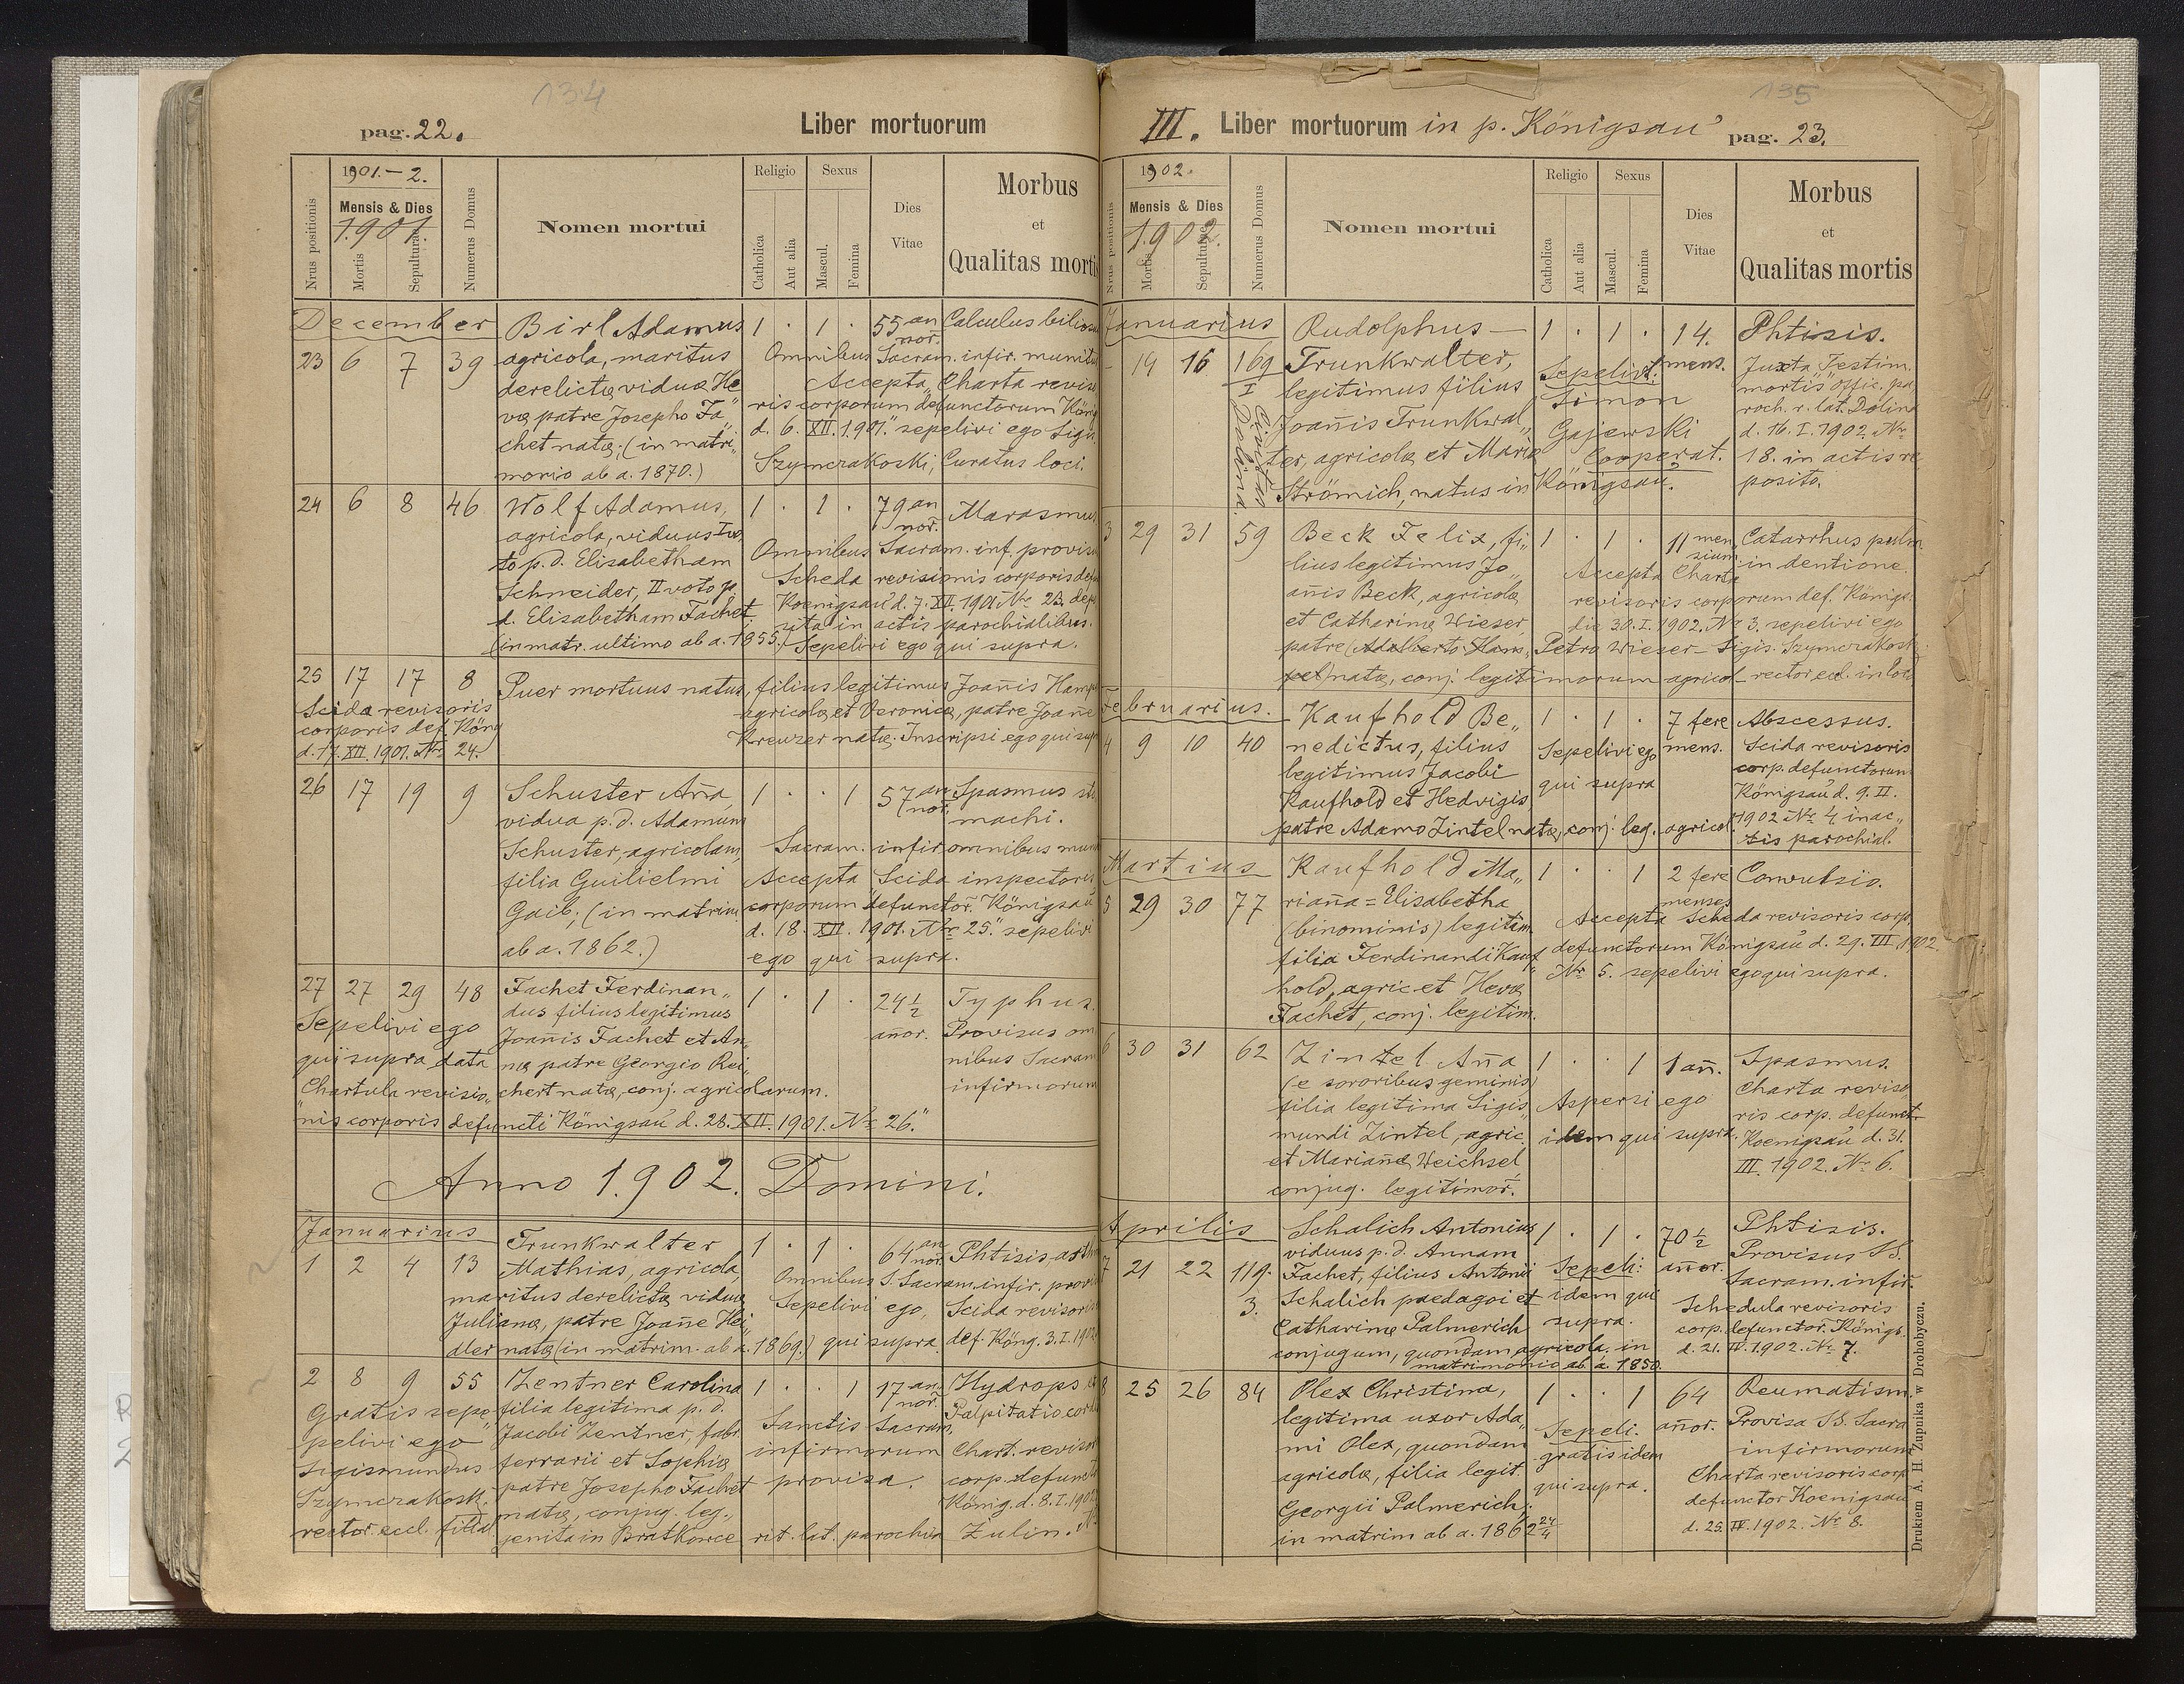 134
pag. 22.
Liber mortuorum
1901.–2.
Nrus positionis
Mensis & Dies
1901.
Mortis
Sepulturae
Numerus Domus
Nomen mortui
Religio
Catholica
Aut alia
Sexus
Mascul.
Femina
Dies
Vitae
Morbus
et
Qualitas mortis
December
23 6 7 39
Birl Adamus
agricola, maritus
derelictæ viduæ He„
væ patre Josepho Fa„
chet natæ; (in matri„
monio ab a. 1870.)
1 · 1 · 55 an
nor̃.
Calculus
Omnibus Sacram. infir. munitus
Accepta „Charta reviso
ris corporum defunctorum König
d. 6. XII. 1901." sepelivi ego Sigis
Szymczakoski, Curatus loci.
24 6 8 46
Wolf Adamus,
agricola, viduus I vo„
to p. d. Elisabetham
Schneider, II voto p.
d. Elisabetham Fachet.
(in matr. ultimo ab a. 1855.)
1 · 1 · 79 an
nor̃.
Marasmus
Omnibus Sacram. inf. provisus
Scheda revisionis corporis def
Koenigsau d. 7. XII. 1901 Nr 23. depo
sita in actis parochialibus.
Sepelivi ego qui supra.
25 17 17 8
Puer mortuus natus, filius legitimus Joañis Hampel
agricolæ et Veronicæ, patre Joañe
Kreuzer natæ. Inscripsi ego qui supra
Scida revisoris
corporis def. König
d. 17. XII. 1901. Nr 24.
26 17 19 9
Schuster Añа,
vidua p. d. Adamum
Schuster, agricolam,
filia Guilielmi
Gaib; (in matrim
ab a. 1862.)
1 · · 1 57 an
nor̃.
Spasmus sto
machi.
Sacram. infir. omnibus mun
Accepta „Scida inspectoris
corporum defunctor̃. Königsau
d. 18. XII. 1901. Nr 25." sepelivi
ego qui supra.
27 27 29 48
Fachet Ferdinan„
dus filius legitimus
Joañis Fachet et An„
næ patre Georgio Rei„
chert natæ, conj. agricolarum.
1 · 1 · 24½
añor.
Typhus.
Provisus om
nibus Sacram
infirmorum
Sepelivi ego
qui supra data
Chartula revisio„
nis corporis defuncti Königsau d. 28. XII. 1901. Nr 26."
Anno 1902. Domini.
Januarius
1 2 4 13
Trunkwalter
Mathias, agricola,
maritus derelictæ viduæ
Julianæ, patre Joañe Hei„
dler natæ (in matrim. ab a. 1869.)
1 · 1 · 64 an
nor̃.
Phtisis asth
Omnibus S. Sacram. infir. provis
Sepelivi ego, Scida revisoris
qui supra. def. König. 3. I. 1902
2 8 9 55
Zentner Carolina
filia legitima p. d.
Jacobi Zentner, fabr.
ferrarii et Sophiæ
patre Josepho Fachet
natæ, conjug. leg.,
genita in Bratkowce rit. lat. parochia Zulin.
1 · · 1 17 an
nor̃.
Hydrops et
Palpitatio cordis
Sanctis Sacram.
infirmorum
provisa.
Chart. revisor
corp. defuncti
König. d. 8. I. 1902
Gratis sepe„
pelivi ego
Sigismundus
Szymczakoski
rector eccl. filial.
135
III. Liber mortuorum in p. Königsau
pag. 23.
1902.
Nrus positionis
Mensis & Dies
1902.
Mortis
Sepulturae
Numerus Domus
Nomen mortui
Religio
Catholica
Aut alia
Sexus
Mascul.
Femina
Dies
Vitae
Morbus
et
Qualitas mortis
Januarius
14 16 169
I
Civitas
Dolina.
Rudolphus –
Trunkwalter,
legitimus filius
Joañis Trunkwal„
ter, agricolæ et Mariæ
Strömich, natus in Königsau.
1 · 1 · 14.
mens.
Sepelivit:
Simon
Gajewski
Cooperat.
Phtisis.
Juxta „Testim.
mortis" offic. pa
roch. r. lat. Dolina
d. 16. I. 1902 Nr
18. in actis re
posito.
3 29 31 59
Beck Felix, fi„
lius legitimus Jo„
añis Beck, agricolæ
et Catharinæ Wieser,
patre (Adalberto Ham„
pel) natæ, conj. legitimorum agricol.
Petro Wieser
1 · 1 · 11 men
sium
Catarrhus pulm.
in dentione.
Accepta Charta
revisoris corporum def. Königs.
die 30. I. 1902. Nr 3. sepelivi ego
Sigis. Szymczakoski
rector eccl. in loco
Februarius.
4 9 10 40
Kaufhold Be„
nedictus, filius
legitimus Jacobi
Kaufhold et Hedvigis
patre Adamo Zintel natæ, conj. leg. agricol.
1 · 1 · 7 fere
mens.
Sepelivi ego
qui supra
Abscessus.
Scida revisoris
corp. defunctorum
Königsau d. 9. II.
1902 Nr 4 in ac„
tis parochial.
Martius
5 29 30 77
Kaufhold Ma„
riaña = Elisabetha
(binominis) legitim.
filia Ferdinandi Kauf„
hold, agric et Hevæ
Fachet, conj. legitim.
1 · · 1 2 fere
menses
Convulsio.
Accepta Scheda revisoris corp.
defunctorum Königsau d. 29. III. 1902.
Nr 5. sepelivi ego qui supra.
6 30 31 62
Zintel Aña
(e sororibus geminis)
filia legitima Sigis„
mundi Zintel, agric.
et Mariañæ Weichsel
conjug. legitimor̃.
1 · · 1 1 añ.
Aspersi ego
idem qui supra.
Spasmus.
Charta reviso„
ris corp. defunct.
Koenigsau d. 31.
III. 1902. Nr 6.
Aprilis
7 21 22 119.
3.
Schalich Antonius
viduus p. d. Annam
Fachet, filius Antonii
Schalich paedagoi et
Catharinæ Palmerich
conjugum, quondam agricola, in
matrimonio ab a. 1850.
1 · 1 · 70½
añor.
Sepeli:
idem qui
supra.
Phtisis.
Provisus SS.
Sacram. infir̃.
Schedula revisoris
corp. defunctor̃. Königs.
d. 21. IV. 1902. Nr 7.
8 25 26 84
Olex Christina,
legitima uxor Ada„
mi Olex, quondam
agricolæ, filia legit.
Georgii Palmerich;
in matrim ab a. 1862 24/4
1 · · 1 64
añor.
Sepeli:
gratis idem
qui supra.
Reumatism.
Provisa SS. Sacra
infirmorum
Charta revisoris corp
defunctor Koenigsau
d. 25. IV. 1902. Nr 8.
Drukiem A. H. Żupnika w Drohobyczu.